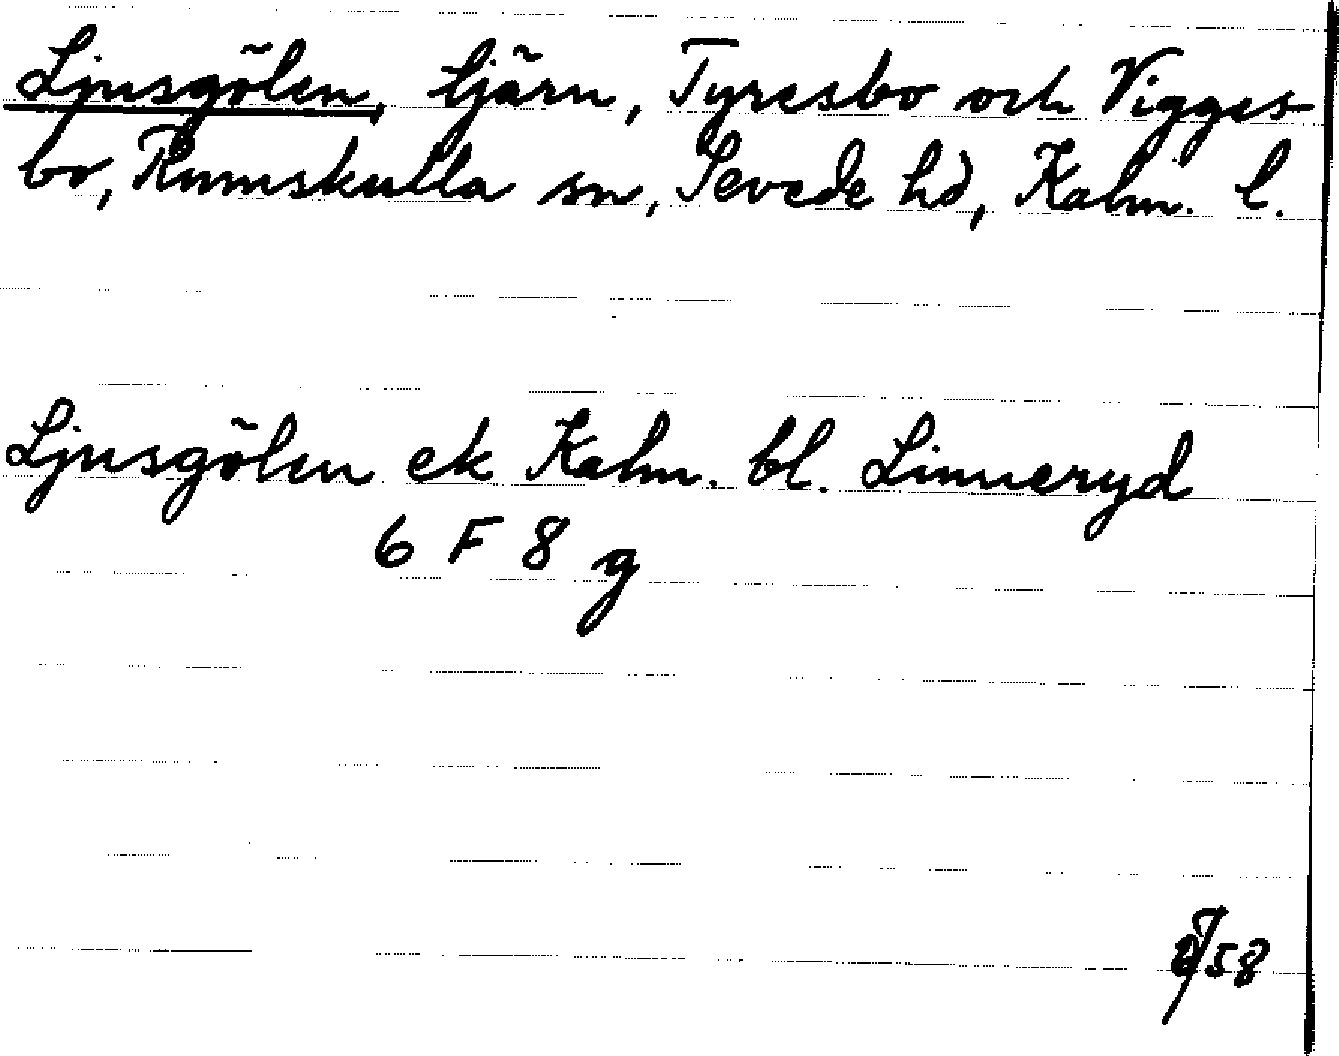 Ljusgölen, tjärn, Tyresbo och Vigges-
bo, Rumskulla sn, Sevede hd, Kalm. l.
Ljusgölen ek Kalm. bl. Linneryd
6 F 8 g
/58